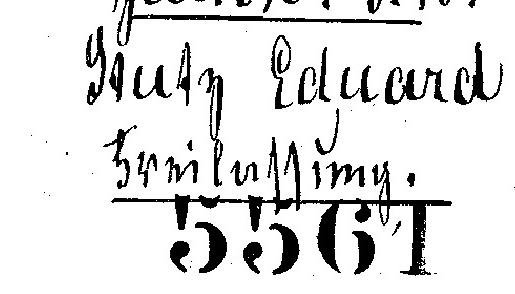 Stutz Eduard
Freilassung.
5561